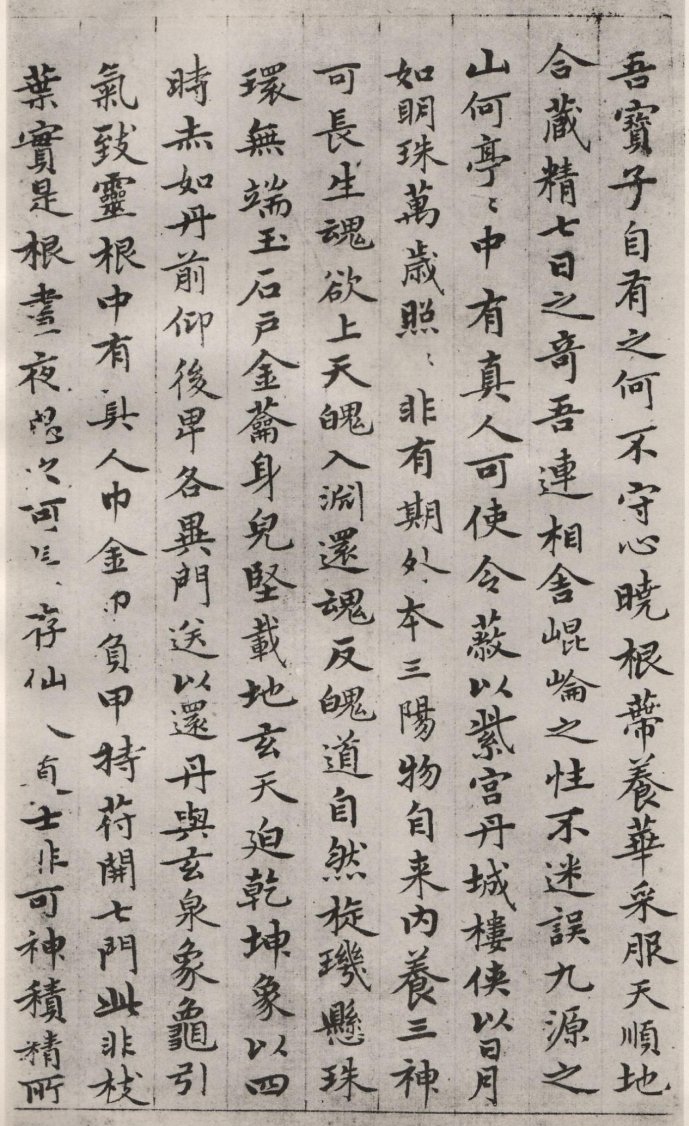 吾寶子自有之何不守心曉根蔕養華采服天順地
合藏精七日之奇吾連相舍崐崘之性不迷誤九源之
山何亭〻中有真人可使令蔽以紫宫丹城樓俠以日月
如明珠萬歲照〻非有期外本三陽物自来内養三神
可長生魂欲上天魄入渊還魂反魄道自然㳬璣懸珠
環無端玉石戸金蘥身皃堅載地玄天迫乾坤象以四
時赤如丹前仰後卑各異門送以還丹與玄泉象龜引
氣致靈根中有真人巾金巾負甲持苻開七門此非枝
葉實是根晝夜思之可 存仙人 士非可神積精所